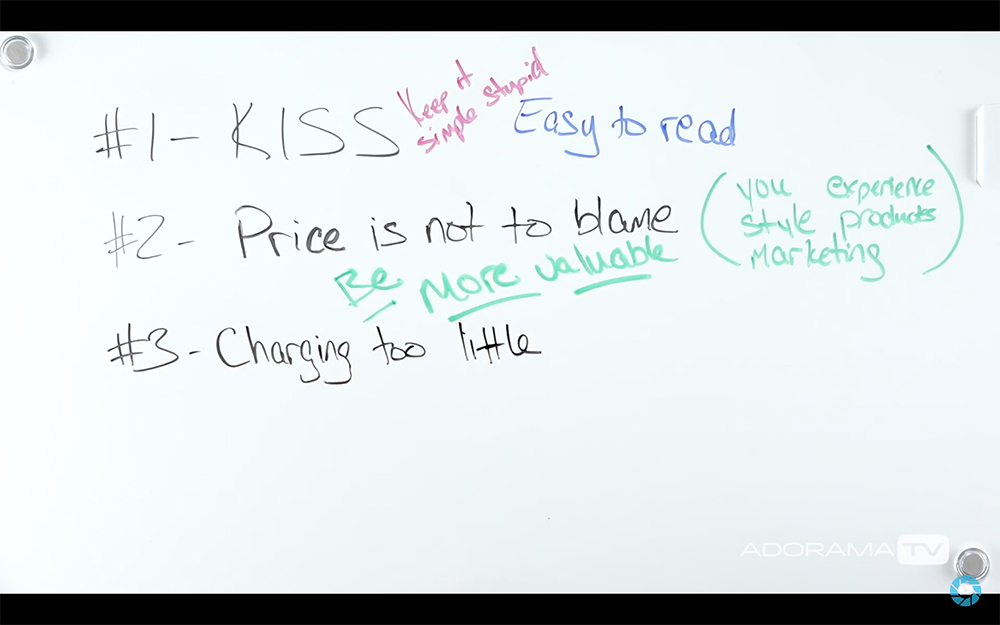 #1 - KISS Keep it simple stupid Easy to read
#2 - Price is not to blame
Be More valuable
(you experience
style products
Marketing)
#3 - Charging too little
ADORAMA TV